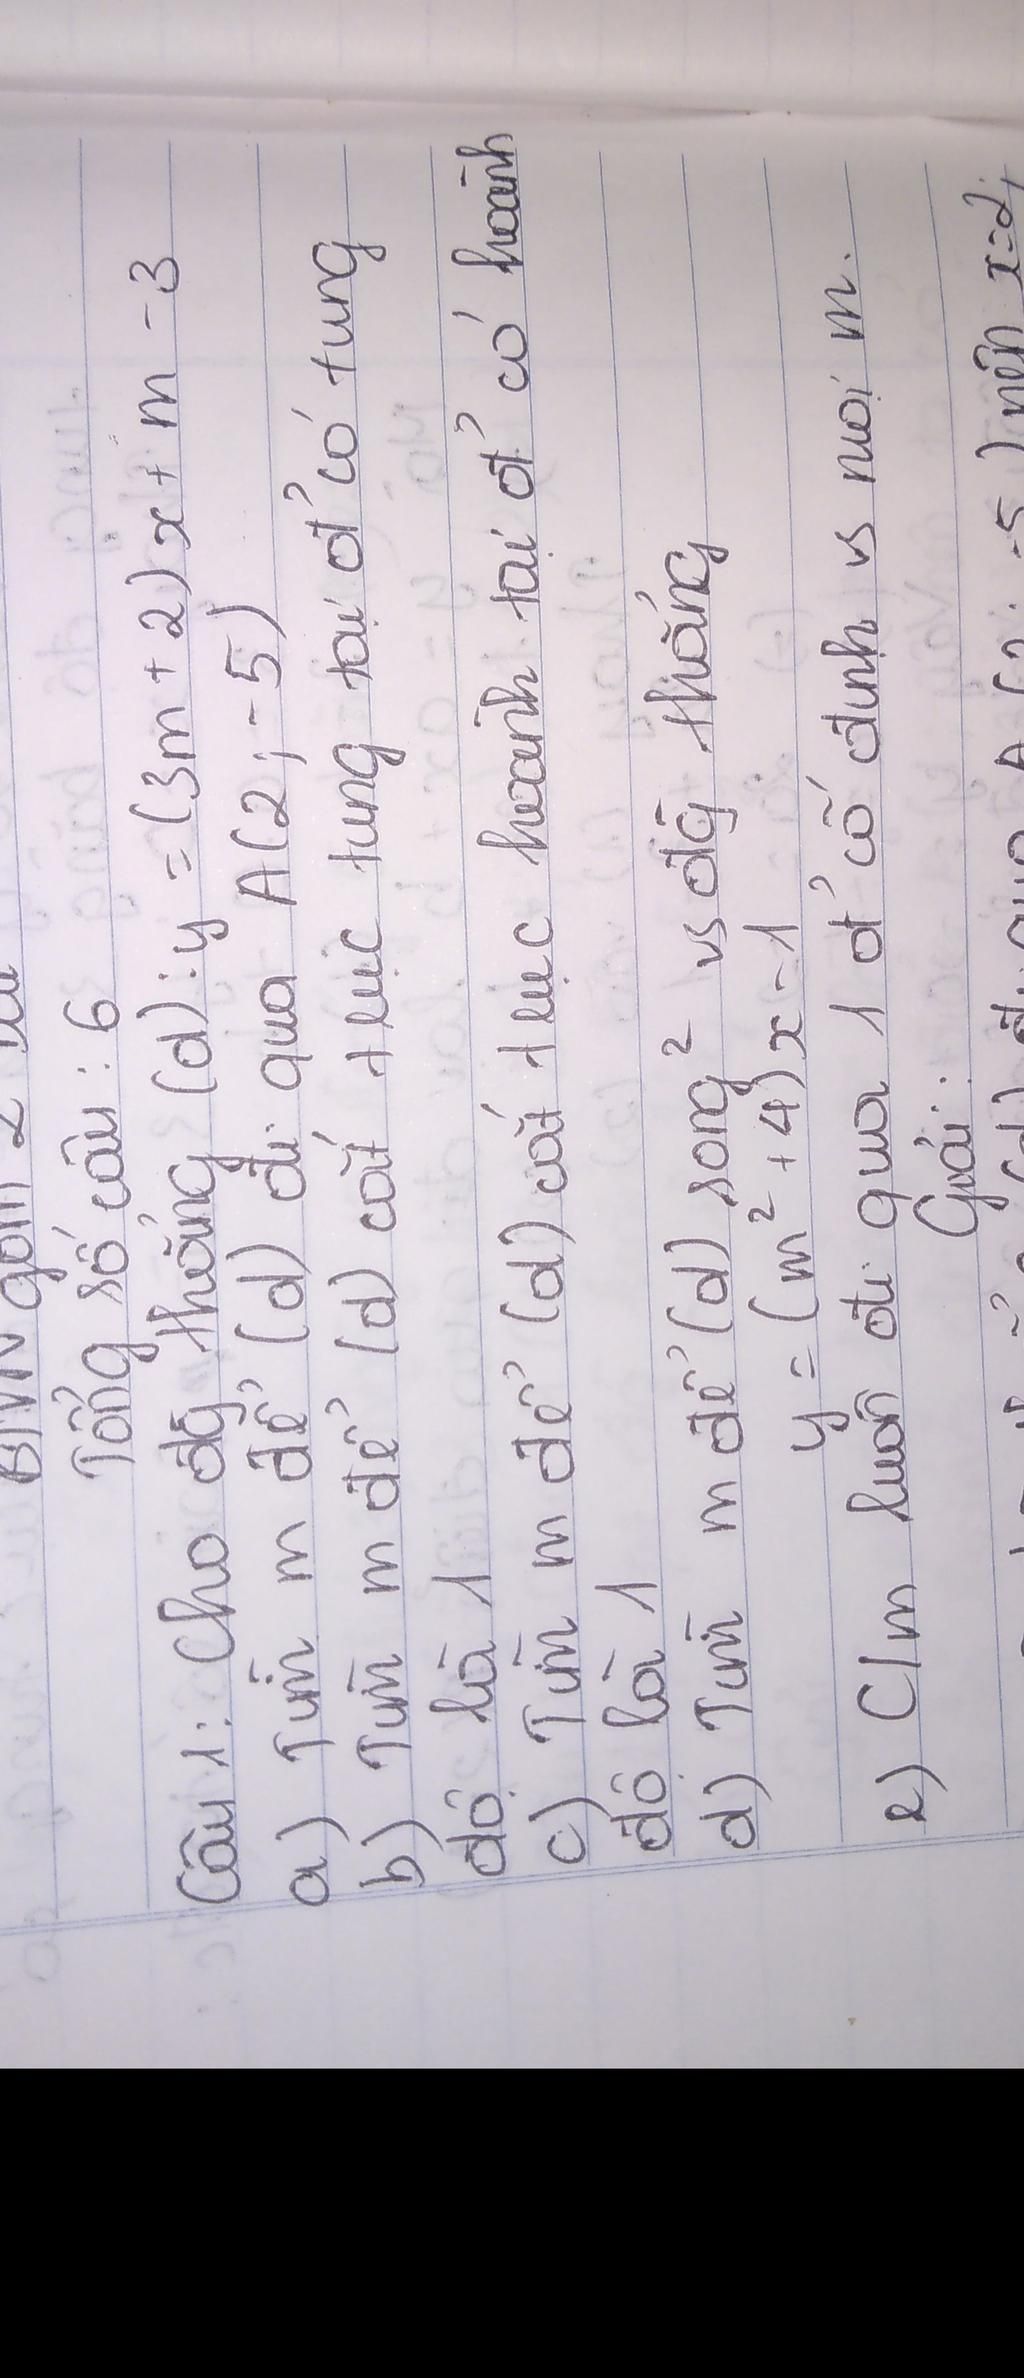 gồm 2
Tổng số câu : 6
Câu 1: Cho đg thẳng (d) : y = (3m + 2) x + m - 3
a) Tìm m để (d) đi qua A(2 ; -5)
b) Tìm m để (d) cắt trục tung tại đ' có tung
độ là 1
c) Tìm m để (d) cắt trục hoành tại đ' có hoành
độ là 1
d) Tìm m để (d) song² vs đg thẳng
y = (m² + 4) x - 1
e) C/m luôn đi qua 1 đ' cố định vs mọi m.
Giải:
(d) đi qua A (2; -5) nên x=2;